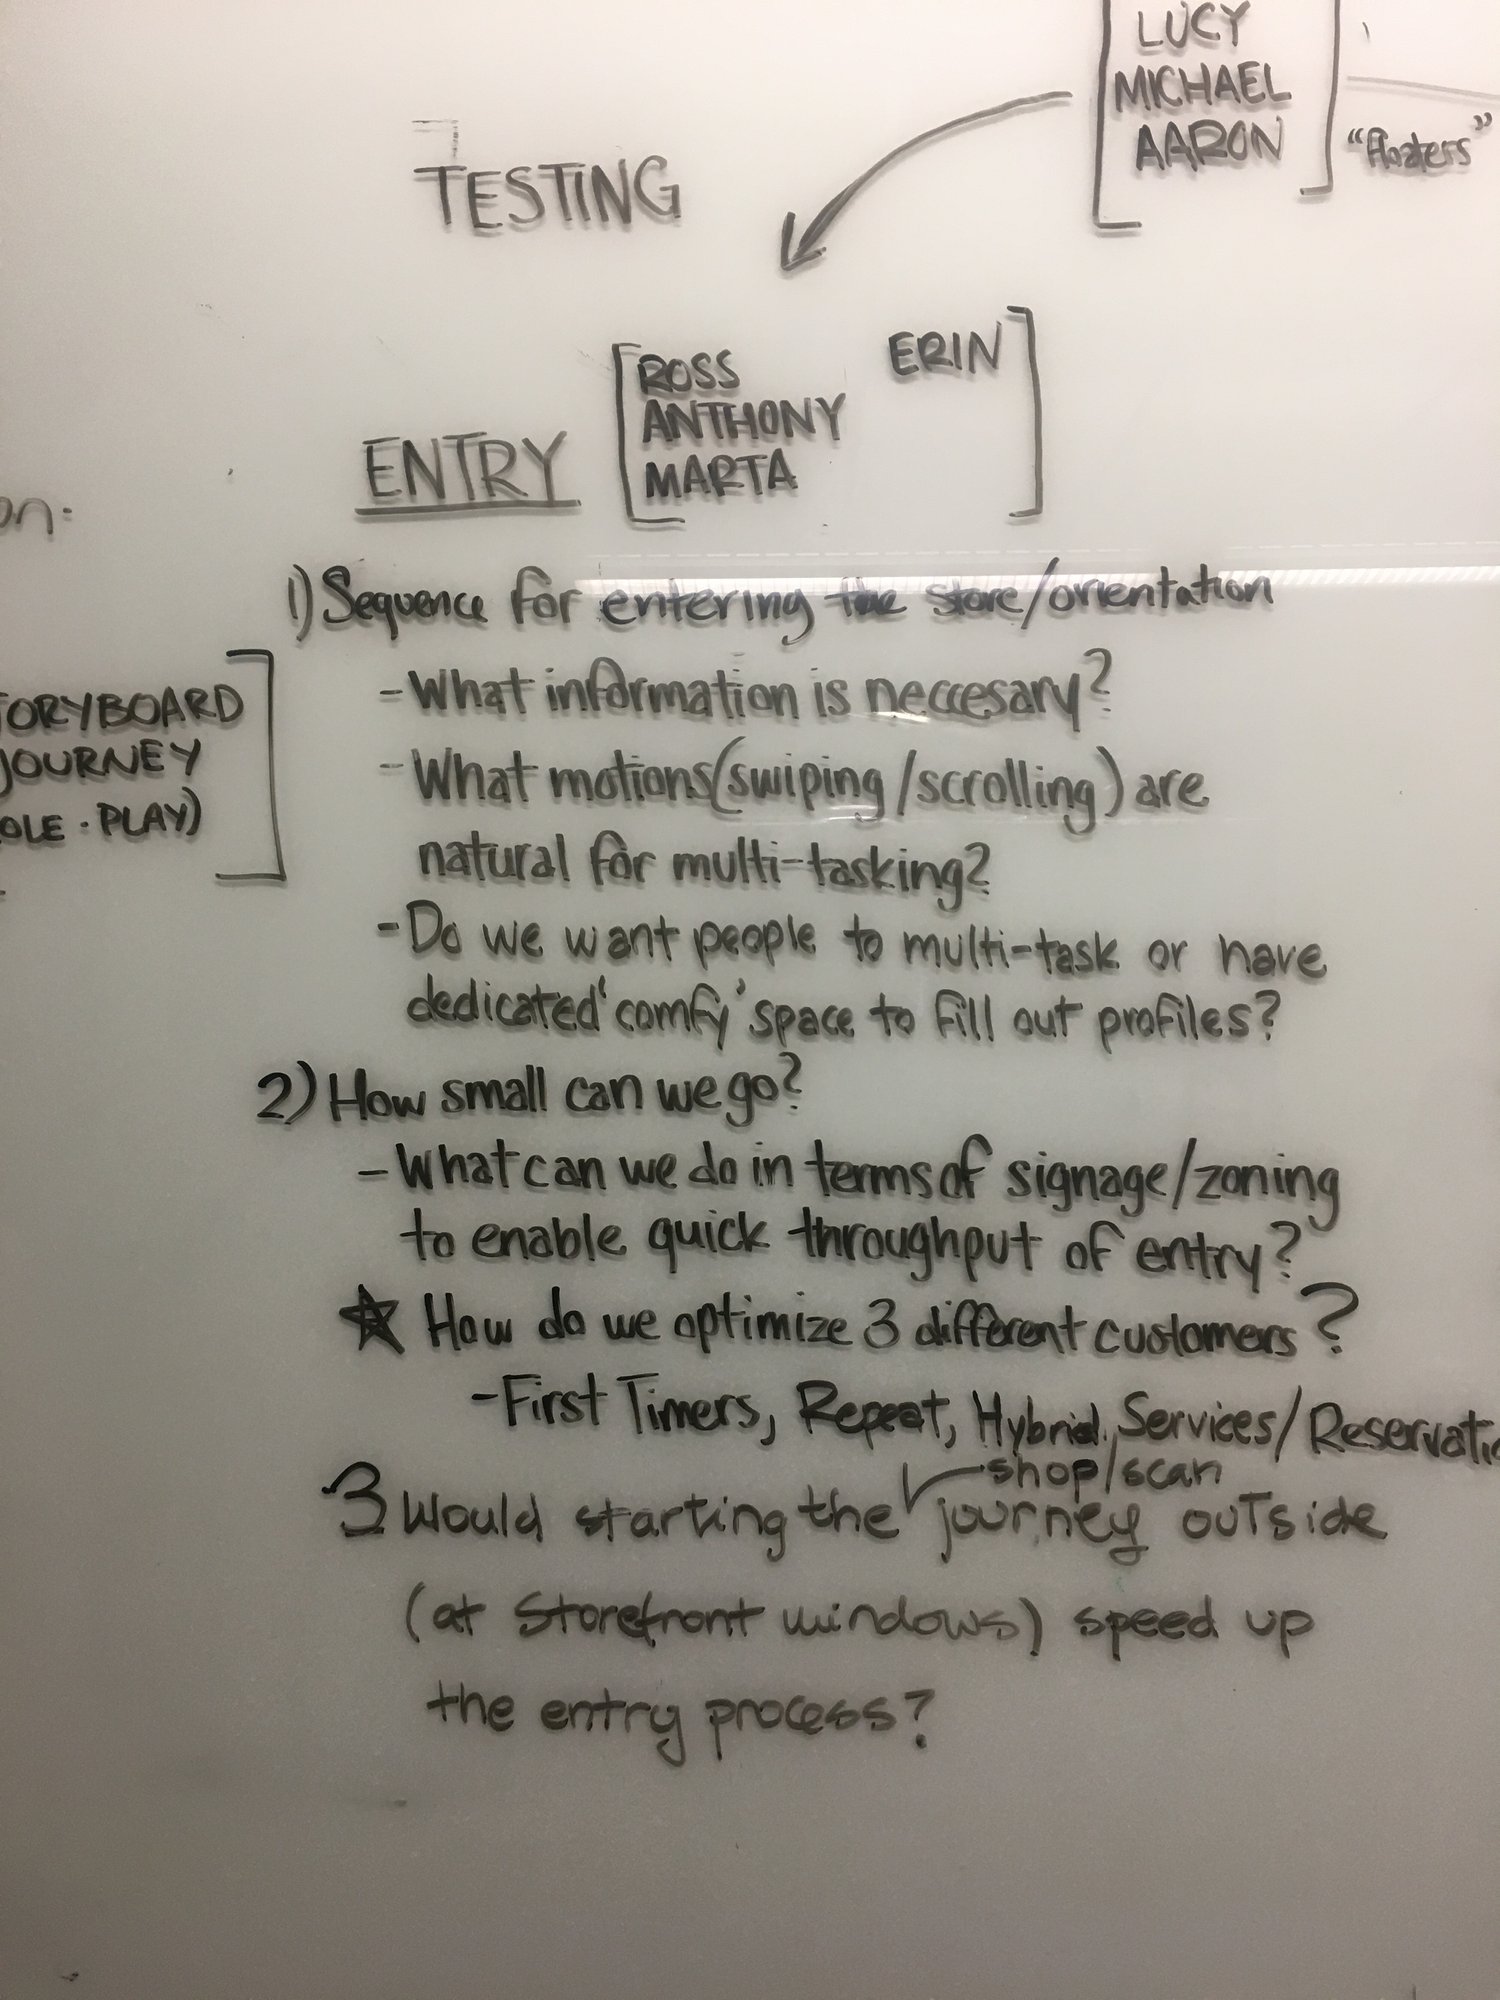 LUCY
MICHAEL
AARON
"Floaters"
TESTING
ROSS
ERIN
ANTHONY
MARTA
ENTRY
on:
1) Sequence for entering the store/orientation
- What information is neccesary?
TORYBOARD
JOURNEY
OLE·PLAY)
- What motions (swiping/scrolling) are
natural for multi-tasking?
- Do we want people to multi-task or have
dedicated 'comfy' space to fill out profiles?
2) How small can we go?
- What can we do in terms of signage/zoning
to enable quick throughput of entry?
☆ How do we optimize 3 different customers?
- First Timers, Repeat, Hybrid. Services/Reservati
shop/scan
3 Would starting the journey outside
(at storefront windows) speed up
the entry process?